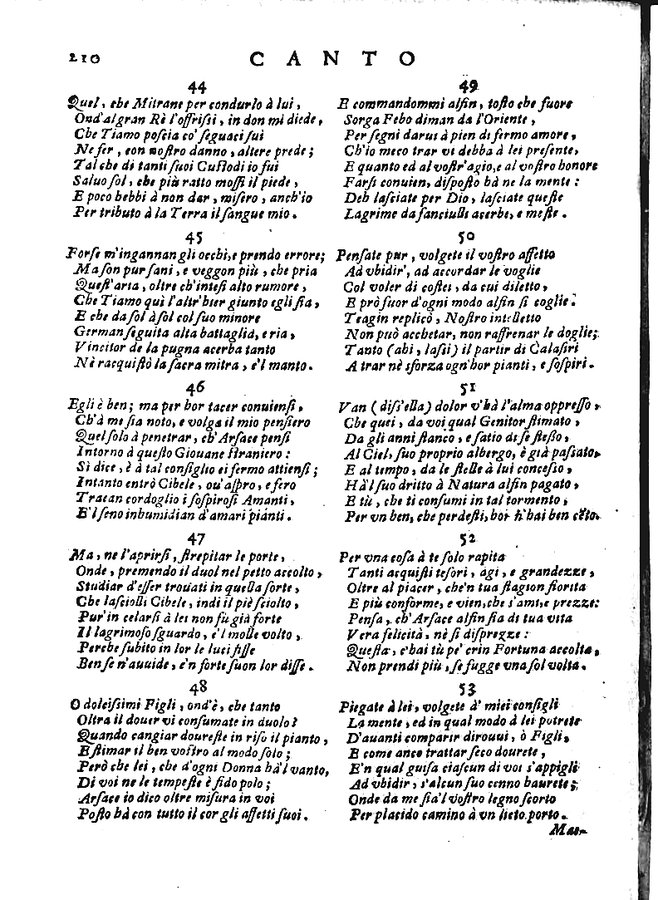 210 CANTO
44
Quel, che Mitrane per condurlo à lui,
Ond'al gran Rè l'offrisii, in don mi diede,
Che Tiamo poscia co' seguaci sui
Ne fer, con nostro danno, altere prede;
Tal che di tanti suoi Custodi io fui
Saluo sol, che più ratto mossi il piede,
E poco hebbi à non dar, misero, anch'io
Per tributo à la Terra il sangue mio.
45
Forse m'ingannan gli occhi, e prendo errore;
Ma son pur sani, e veggon più, che pria
Quest'aria, oltre ch'intesi alto rumore,
Che Tiamo quì l'altr'hier giunto egli sia,
E che da sol à sol col suo minore
German seguita alta battaglia, e ria,
Vincitor de la pugna acerba tanto
Nè racquistò la sacra mitra, e'l manto.
46
Egli è ben; ma per hor tacer conuiensi,
Ch'à me sia noto, e volga il mio pensiero
Quel solo à penetrar, ch'Arsace pensi
Intorno à questo Giouane straniero:
Si dice, e à tal consiglio ei fermo attiensi;
Intanto entrò Cibele, ou'aspro, e fero
Traean cordoglio i sospirosi Amanti,
E'l seno inhumidian d'amari pianti.
47
Ma, ne l'aprirsi, strepitar le porte,
Onde, premendo il duol nel petto accolto,
Studiar d'esser trouati in quella sorte,
Che lasciolli Cibele, indi il piè sciolto,
Pur'in celarsi à lei non fù già forte
Il lagrimoso sguardo, e'l molle volto,
Perche subito in lor le luci fisse
Ben se n'auuide, e'n forte suon lor disse.
48
O dolcissimi Figli, ond'è, che tanto
Oltra il douer vi consumate in duolo?
Quando cangiar doureste in riso il pianto,
Estimar il ben vostro al modo solo;
Però che lei, che d'ogni Donna hà'l vanto,
Di voi ne le tempeste è fido polo;
Arsace io dico oltre misura in voi
Posto hà con tutto il cor gli affetti suoi.
49
E commandommi alfin, tosto che fuore
Sorga Febo diman da l'Oriente,
Per segni darui à pien di fermo amore,
Ch'io meco trar vi debba à lei presente,
E quanto ed al vostr'agio, e al vostro honore
Farsi conuien, disposto hà ne la mente:
Deh lasciate per Dio, lasciate queste
Lagrime da fanciulli acerbe, e meste.
50
Pensate pur, volgete il vostro affetto
Ad vbidir', ad accordar le voglie
Col voler di costei, da cui diletto,
E prò suor d'ogni modo alfin si coglie.
Teagin replicò, Nostro intelletto
Non può acchetar, non raffrenar le doglie;
Tanto (ahi, lassi) il partir di Calasiri
A trar nè sforza ogn'hor pianti, e sospiri.
51
Van (diss'ella) dolor v'hà l'alma oppresso,
Che quei, da voi qual Genitor stimato,
Da gli anni stanco, e satio di se stesso,
Al Ciel, suo proprio albergo, è già passato,
E al tempo, da le stelle à lui concesso,
Hà'l suo dritto à Natura alfin pagato,
E tù, che ti consumi in tal tormento,
Per vn ben, che perdesti, hor n'hai ben cẽto.
52
Per vna cosa à te solo rapita
Tanti acquisti tesori, agi, e grandezze,
Oltre al piacer, che'n tua stagion fiorita
E più conforme, e vien, che s'ami, e prezze:
Pensa, ch'Arsace alfin sia di tua vita
Vera felicità, nè si disprezze:
Questa, c'hai tù pe'crin Fortuna accolta,
Non prendi più, se fugge vna sol volta.
53
Piegate à lei, volgete à' miei consigli
La mente, ed in qual modo à lei potrete
D'auanti comparir diroui, ò Figli,
E come anco trattar seco dourete,
E'n qual guisa ciascun di voi s'appigli
Ad vbidir, s'alcun suo cenno haurete;
Onde da me sia'l vostro legno scorto
Per placido camino à vn lieto porto.
Mae-